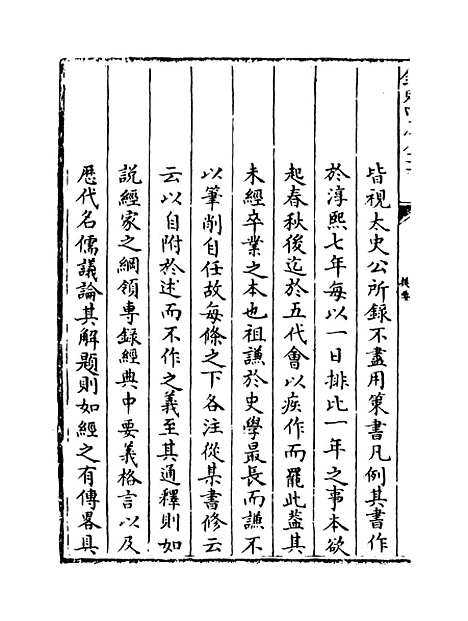 皆視太史公所録不盡用䇿書凡例其書作
於淳熙七年每以一日排比一年之事本欲
起春秋後迄於五代會以疾作而罷此葢其
未經卒業之本也祖謙於史學最長而謙不
以筆削自任故每條之下各注從某書修云
云以自附於述而不作之義至其通釋則如
說經家之綱領專録經典中要義格言以及
歷代名儒議論其解題則如經之有傳畧具